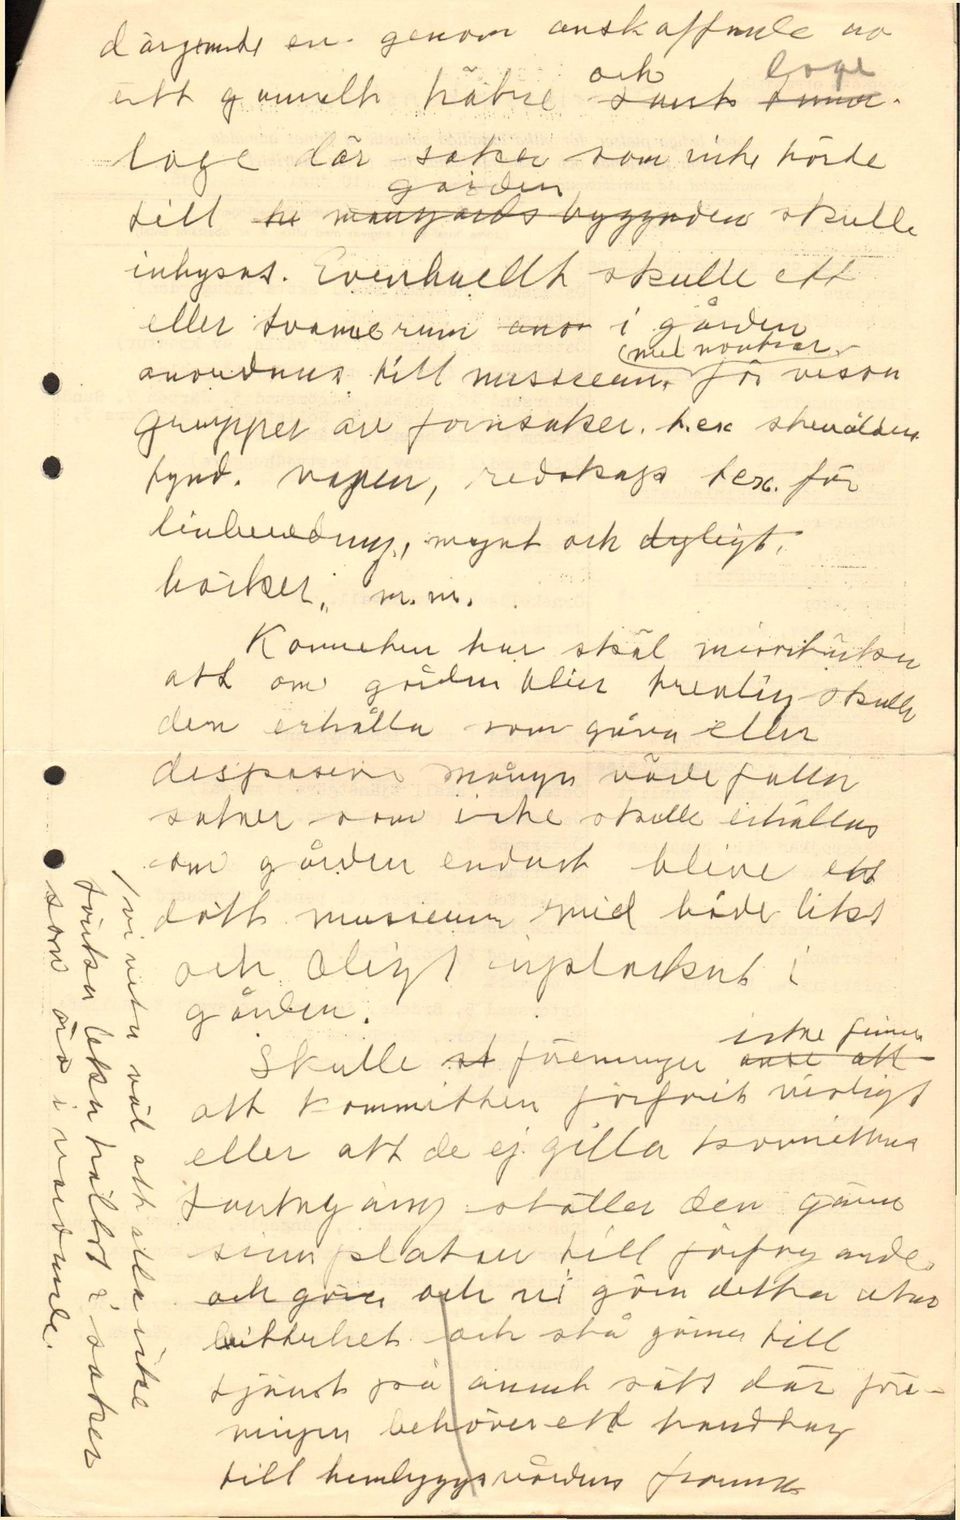 en genom anskaffande av
ett gammalt härbre och samt loge
loge där saker som icke hörde
till gården mangårdsbyggnaden skulle
inhysas. Eventuellt skulle ett
eller tvänne rum i gården
anordnas till musseeum (med montrar) för vissa
grupper av fornsaker. t.ex. stenålders
fynd. vapen, redskap t ex. för
linberedning, mynt och dyligt,
böcker, m.m.
har skäl misstänka
att om gården blir trevlig skulle
den erhålla som gåva eller
disposion många värdefulla
saker som icke skulle erhållas
om gården endast bleve ett
dött musseeum med både likt
och olikt uplockat i
gården.
Skulle föreningen icke finna anse att
att kommitten förfarit riktigt
eller att de ej gilla
tankegång ställer den gärna
sina platser till förfogande
och göra och vi göra detta utan
bitterhet och stå gärna till
tjänst på annat sätt där före-
ningen behöver ett handtag
till hembygdsvårdens fromma
/vi veta väl att alla icke
tänka lika hället i saker
som äro i vardande.